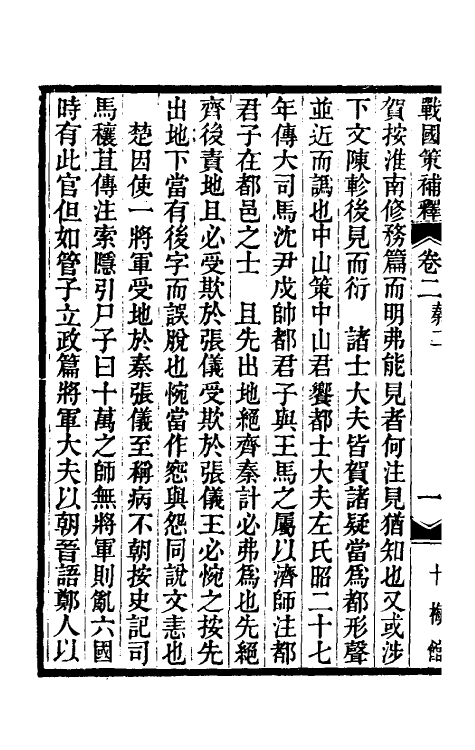 戰國策補釋 卷二 秦二 一 十梅館
賀按淮南修務篇而明弗能見者何注見猶知也又或涉
下文陳軫後見而衍　諸士大夫皆賀諸疑當爲都形聲
並近而譌也中山策中山君饗都士大夫左氏昭二十七
年傳大司馬沈尹戍帥都君子與王馬之屬以濟師注都
君子在都邑之士　且先出地絕齊秦計必弗爲也先絕
齊後責地且必受欺於張儀受欺於張儀王必惋之按先
出地下當有後字而誤脫也惋當作惌與怨同說文恚也
楚因使一將軍受地於秦張儀至稱病不朝按史記司
馬穰苴傳注索隱引尸子曰十萬之師無將軍則亂六國
時有此官但如管子立政篇將軍大夫以朝晉語鄭人以